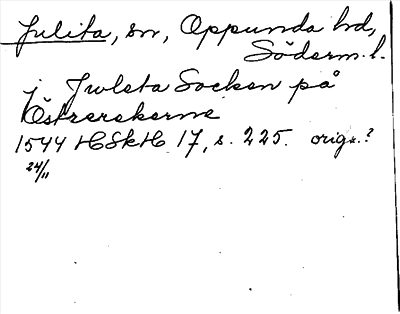 Julita, sn, Oppunda hd,
Söderm. l.
j Jwleta Socken på
Östrerekarne
1544 HSkH 17, s. 225. orig.?
24/11